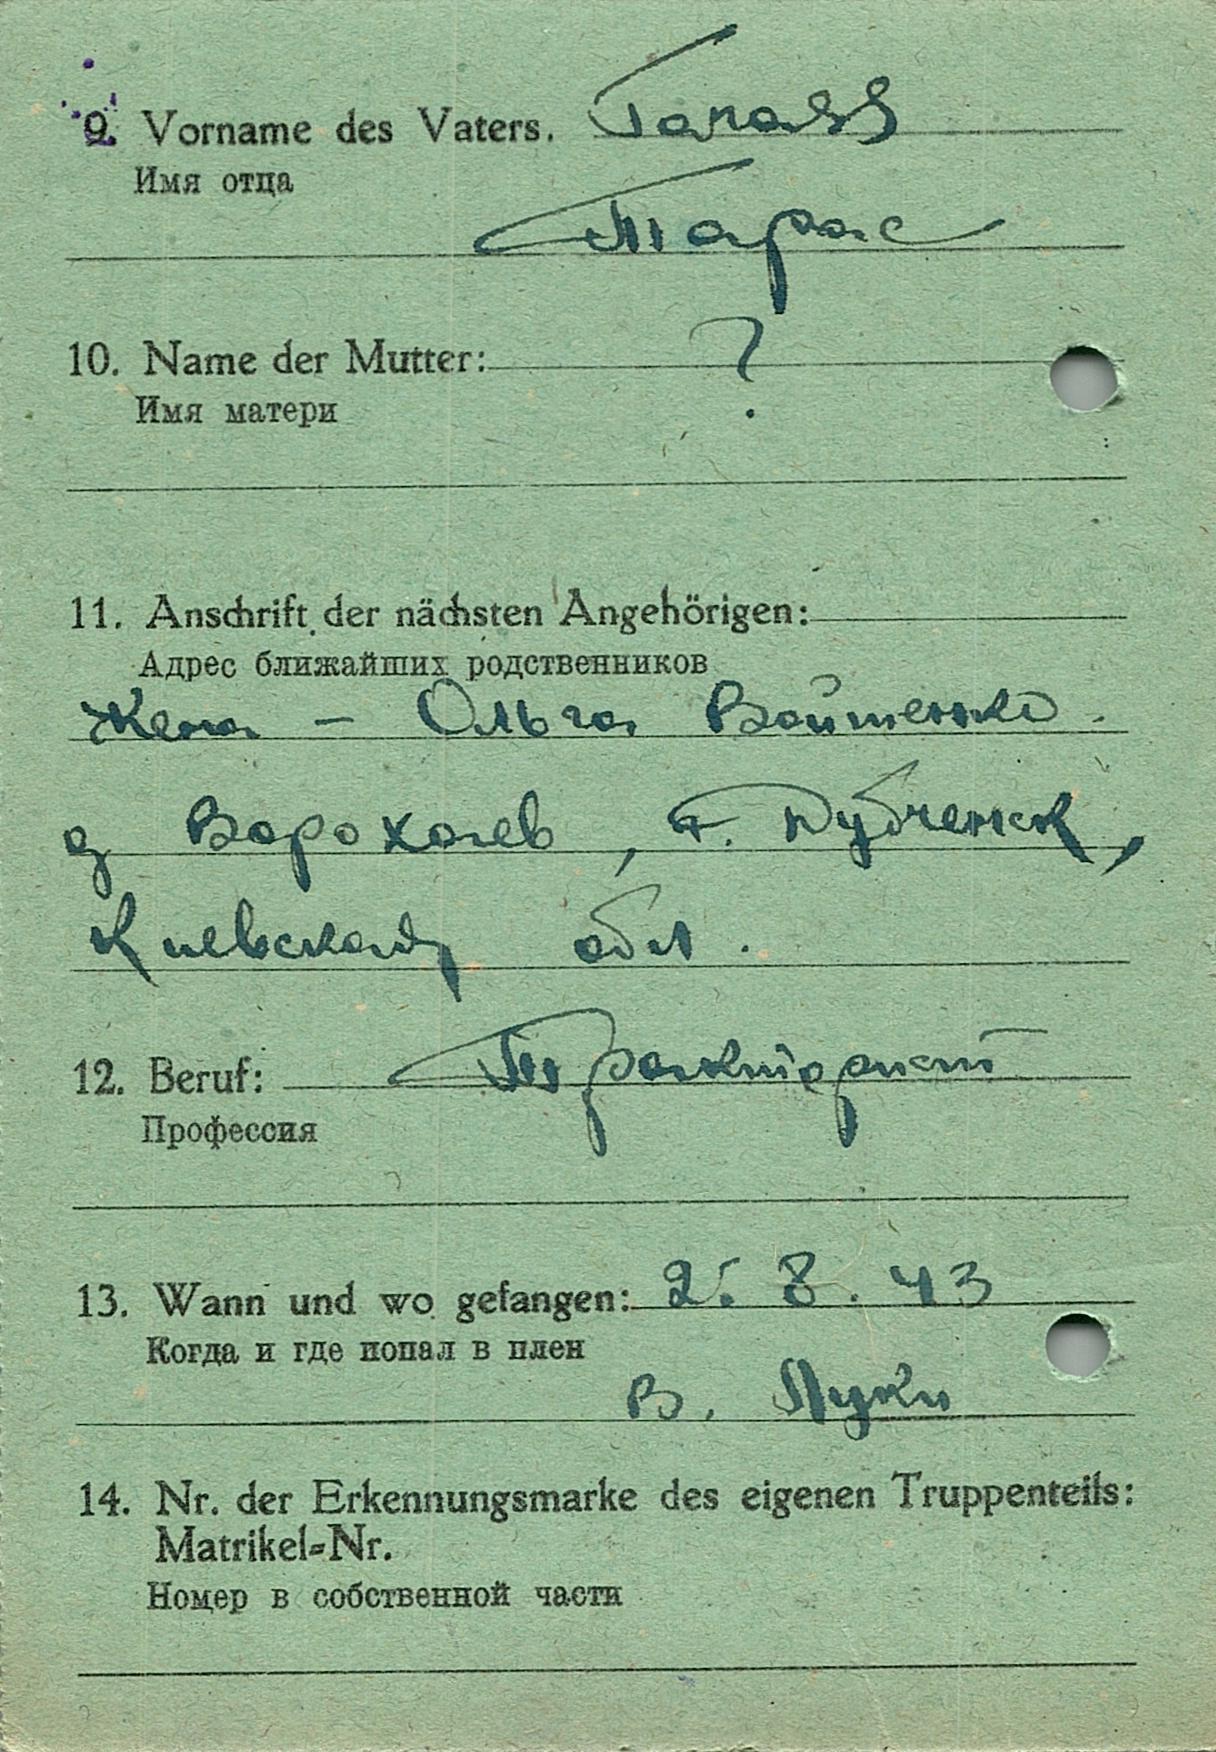 9. Vorname des Vaters. Tarass
Имя отца
Тарас
10. Name der Mutter: ?
Имя матери
11. Anschrift der nächsten Angehörigen:
Адрес ближайших родственников
Жена - Ольга Войтенко.
д , г.
Киевская обл.
12. Beruf: Тракторист
Профессия
13. Wann und wo gefangen: 2. 8. 43
Когда и где попал в плен
В. Луки
14. Nr. der Erkennungsmarke des eigenen Truppenteils:
Matrikel-Nr.
Номер в собственной части